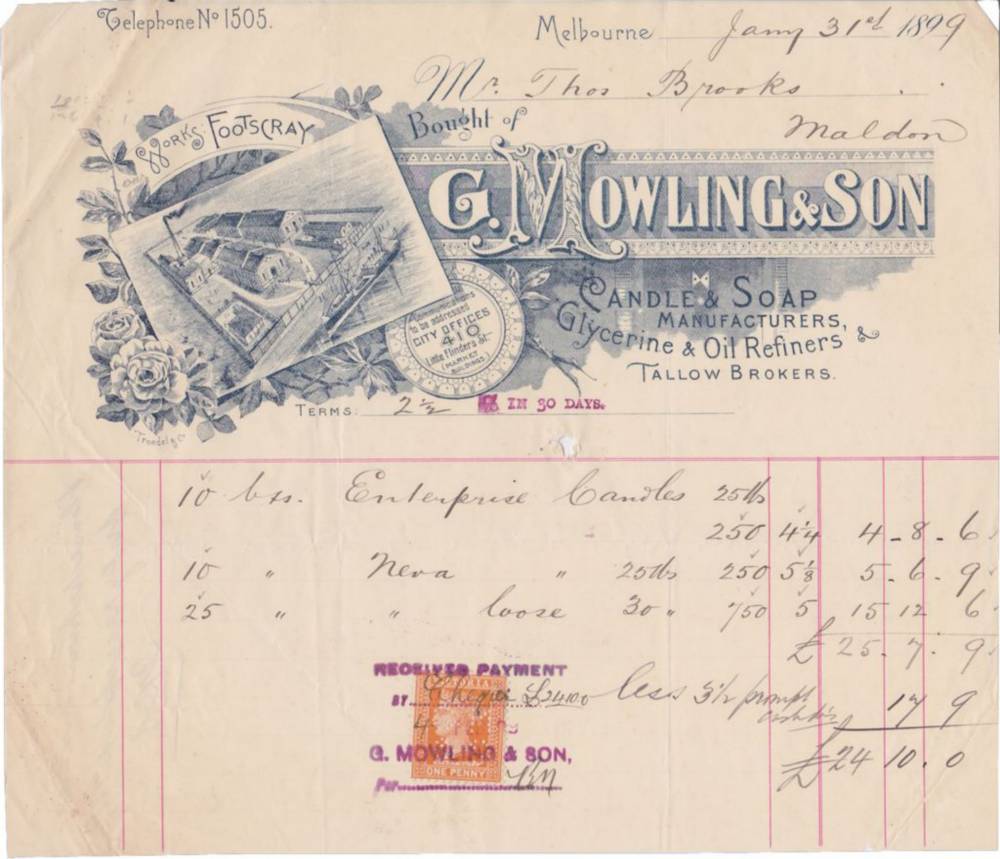 Telephone No 1505.
Melbourne Jany 31st 1899
Mr. Thos Brooks
Maldon
Works: Footscray
Bought of
G. Mowling & Son
Candle & Soap
Manufacturers,
Glycerine & Oil Refiners &
Tallow Brokers.
Communications
to be addressed
City Offices
410
Little Flinders St.
(Market
Buildings)
Troedel & Co
Terms: 2 1/2 % IN 30 DAYS.
10 bxs. Enterprise Candles 25lb
250 4 1/4 4 - 8 - 6
10 " Neva " 25lbs 250 5 1/8 5 - 6 - 9
25 " " loose 30 " 750 5 15 12 6
£ 25 . 7 . 9
less 3 1/2 prompt
cash dis 17 9
£24 10 . 0
RECEIVED PAYMENT
BY Cheque £24.10.0
VICTORIA
4
G. MOWLING & SON,
ONE PENNY
Per